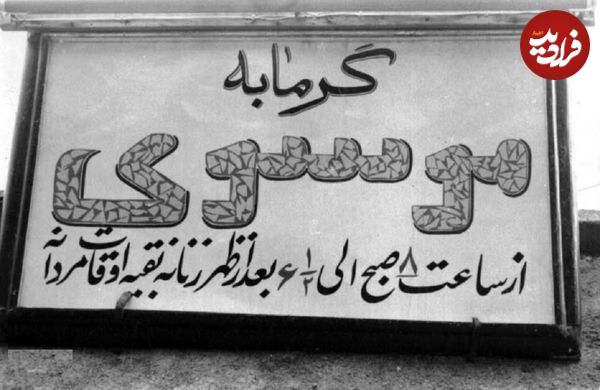 گرمابه
موسوی
از ساعت ۸ صبح الی ۶ ۱/۲ بعد از ظهر زنانه بقیه اوقات مردانه
فرادید
اخبار